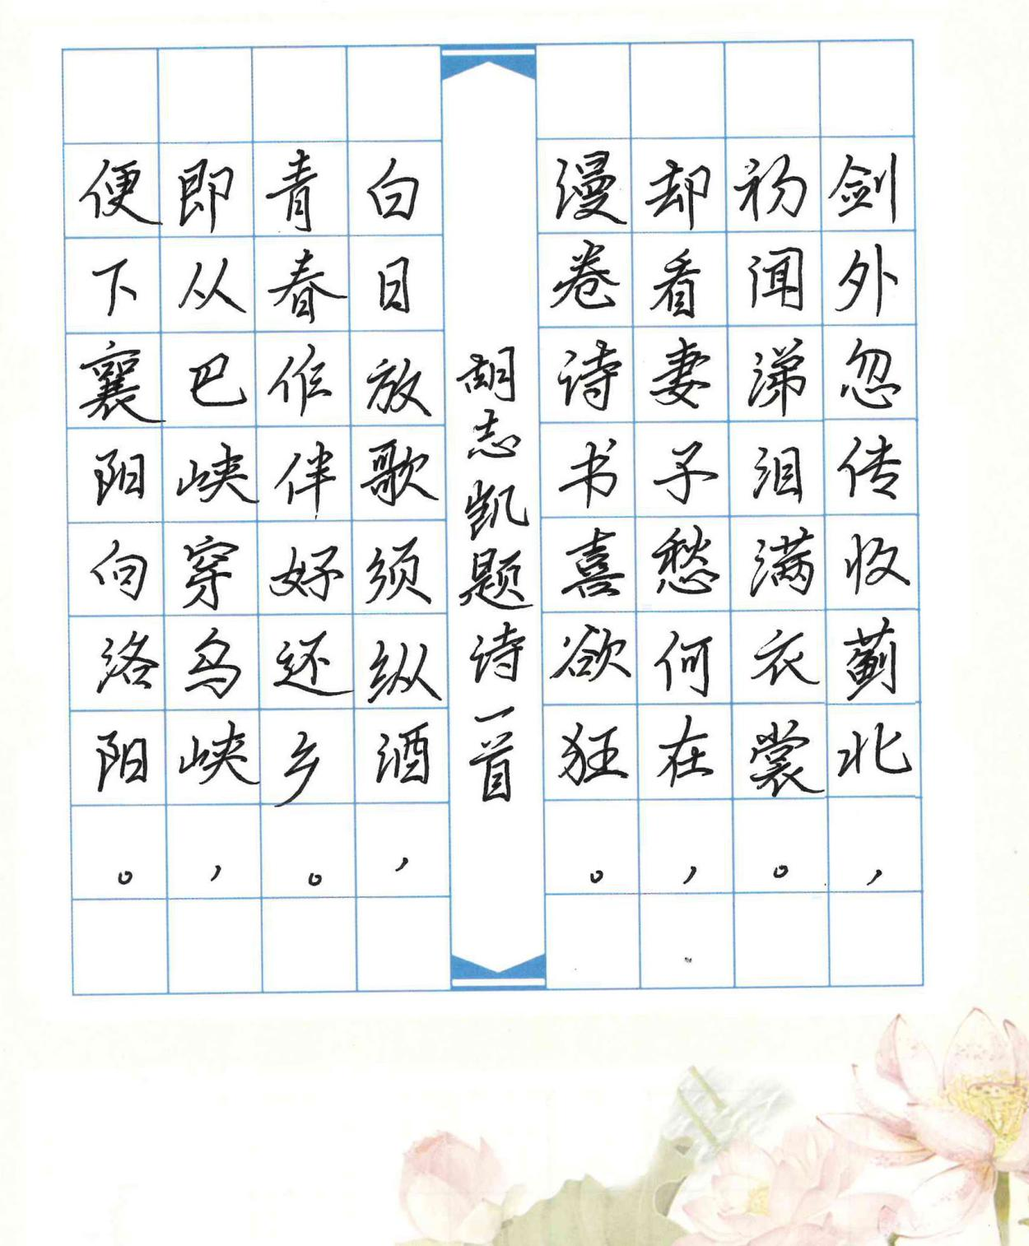 剑外忽传收蓟北，
初闻涕泪满衣裳。
却看妻子愁何在，
漫卷诗书喜欲狂。
胡志凯题诗一首
白日放歌须纵酒，
青春作伴好还乡。
即从巴峡穿乌峡，
便下襄阳向洛阳。